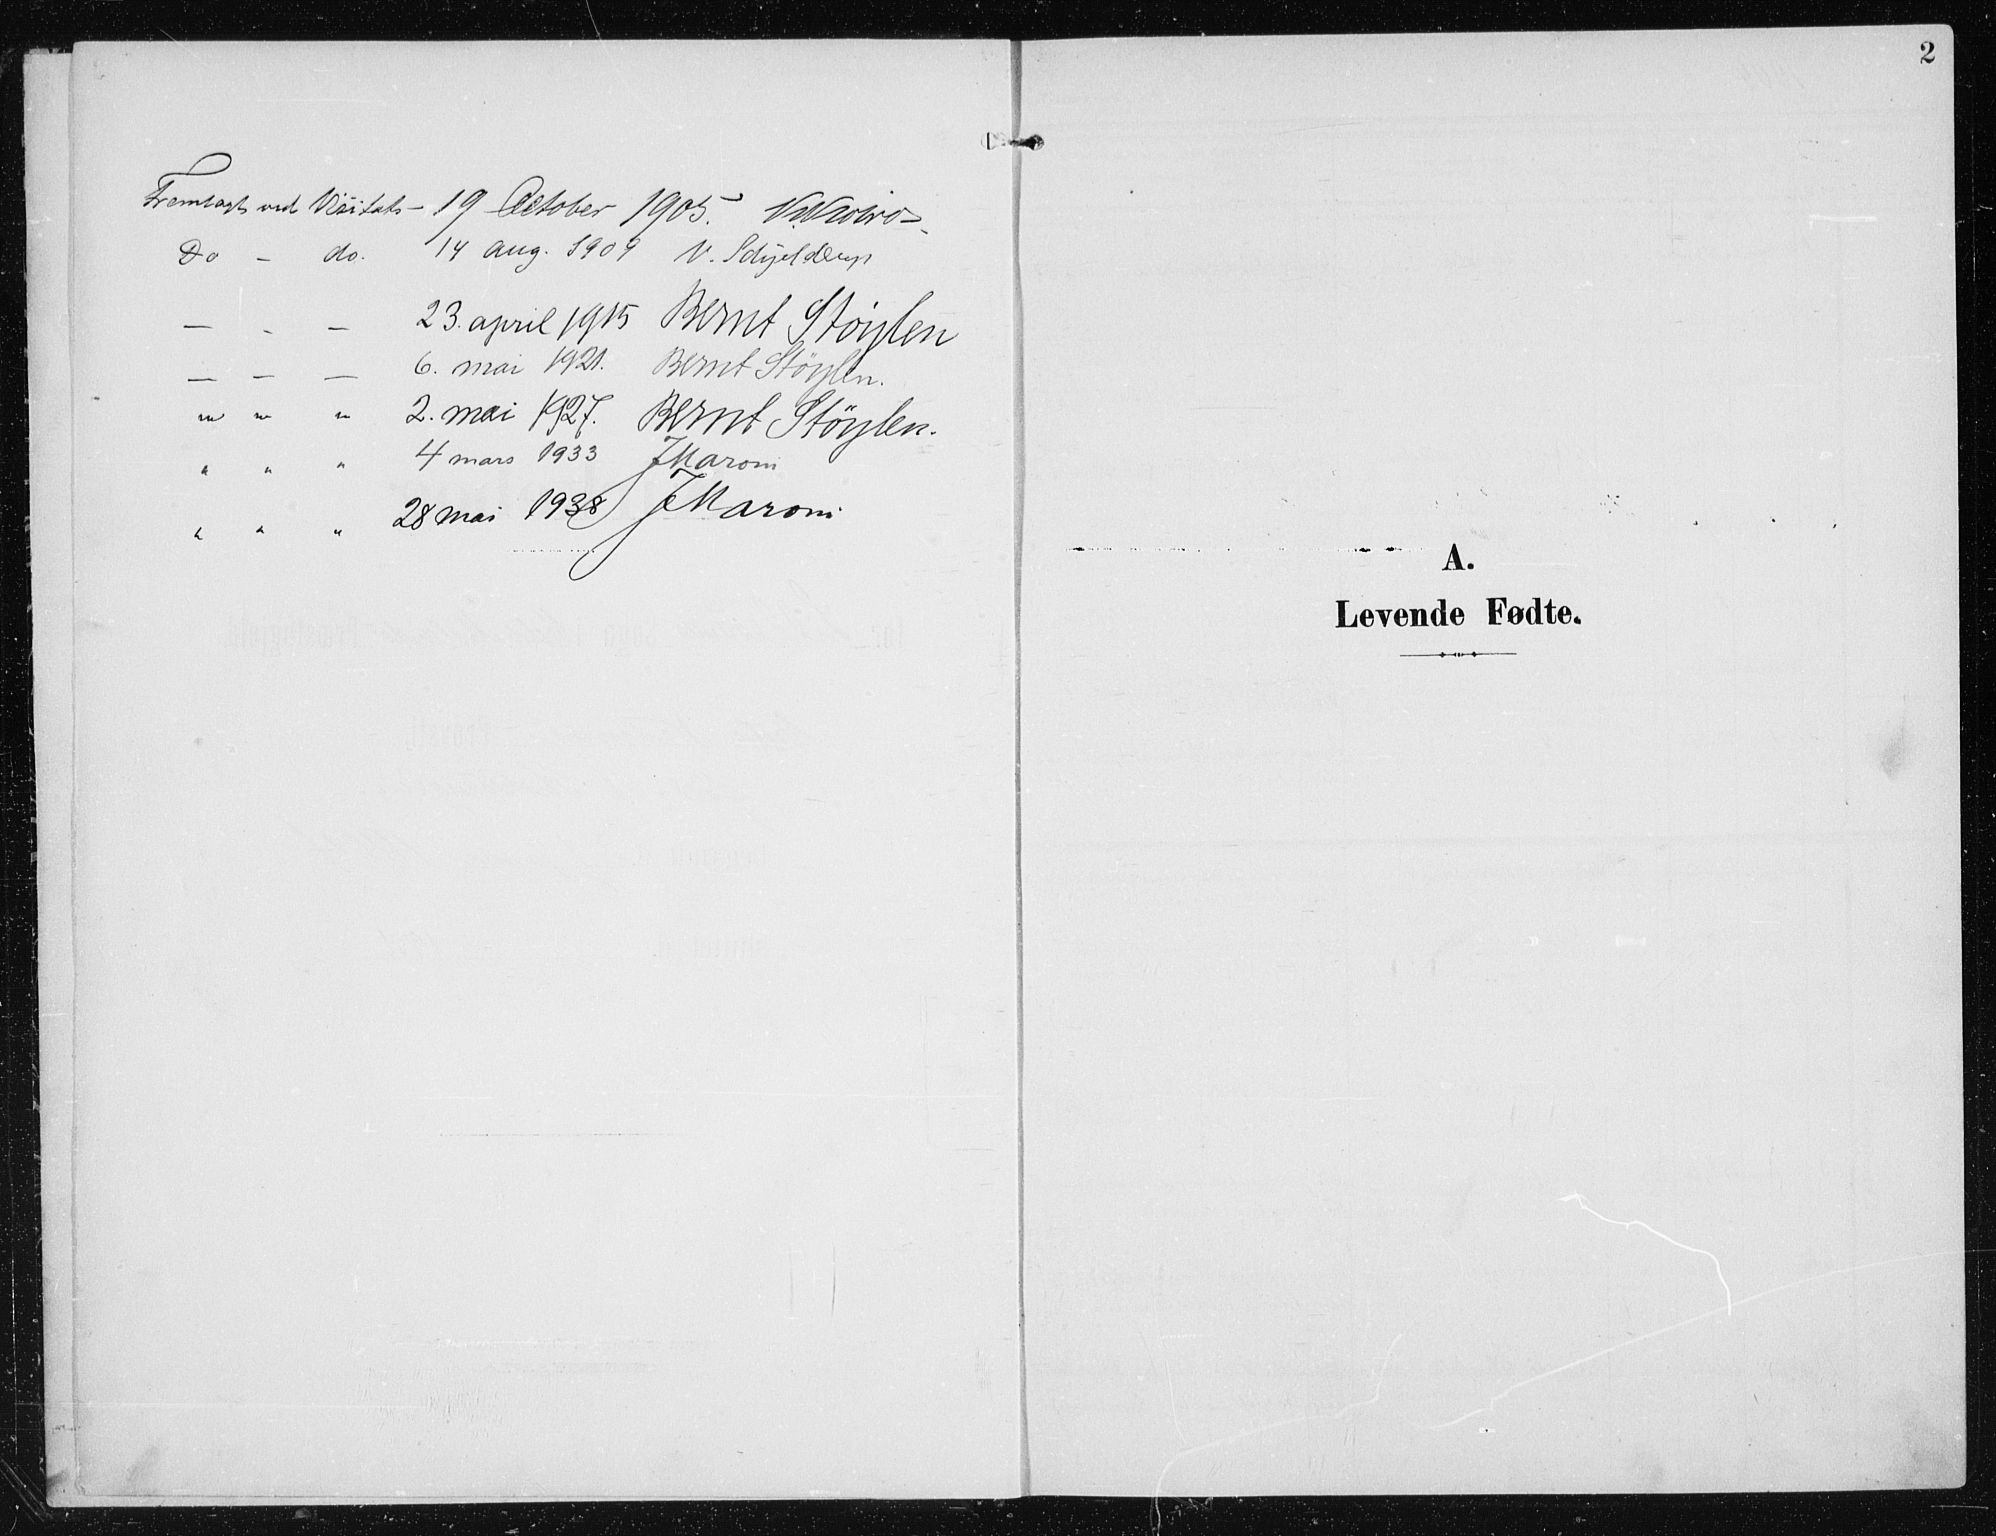 Fremlagt ved Visitats – 19 October 1905.
Do – do. 14 aug. 1909 V. Schjelderup
— - — 23. april 1915 Bernt Støylen
— — — 6. mai 1921. Bernt Støylen.
" " " 2. mai 1927. Bernt Støylen.
" " " 4 mars 1933 J Maroni
" " " 28 mai 1938 J Maroni
2
A.
Levende Fødte.